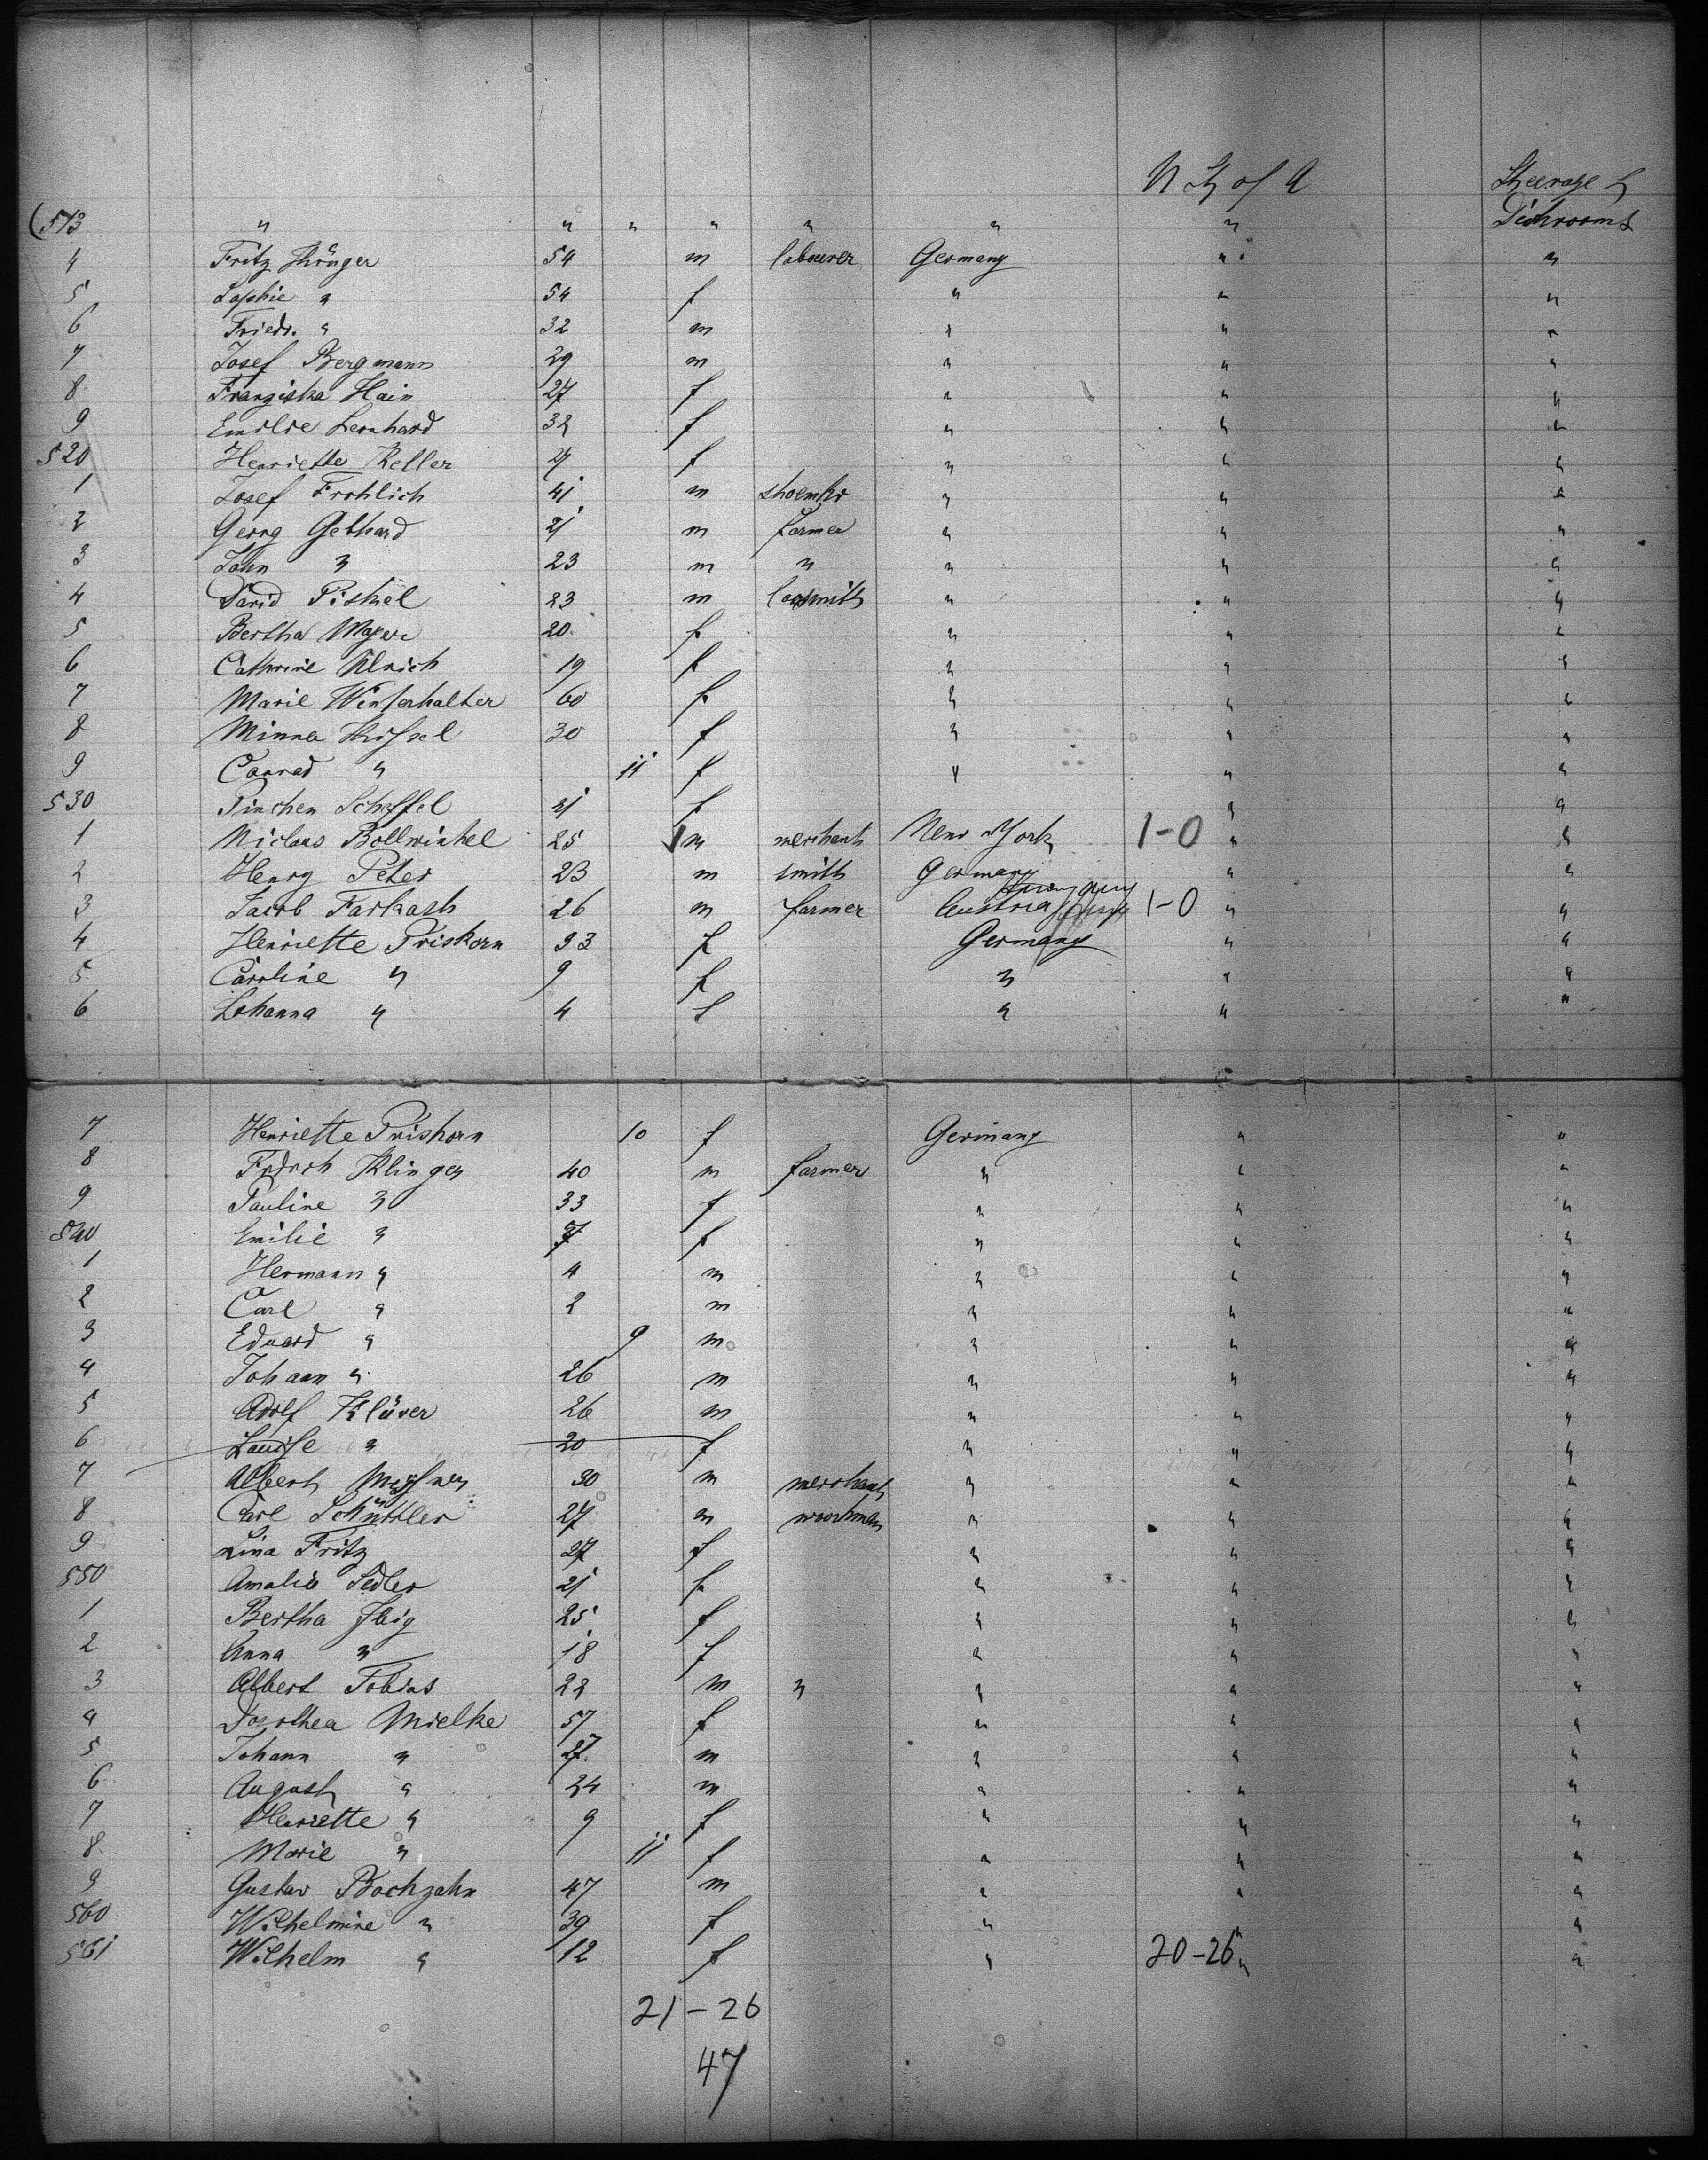 U St of A Steerage &
(513 " " " " " " " Dickrooms
4 Fritz 54 m labourer Germany " "
5 Sophie " 54 f " " "
6 Friedr. " 32 m " " "
7 Josef Bergmann 29 m " " "
8 Franziska Hain 27 f " " "
9 Emilie Leonhard 32 f " " "
520 Henriette Keller f " " "
1 Josef Frohlich 41 m shoemkr " " "
2 Georg Gebhard 21 m farmer " " "
3 John " 23 m " " " "
4 David Pishel 23 m locksmith " " "
5 Bertha Mayer 20 f " " "
6 Cathrine Ulrich 19 f " " "
7 Marie Winterhalter 60 f " " "
8 Minna 30 f " " "
9 Conrad " 11 f " " "
530 Pinchen Scheffel 21 f " "
1 Niclaus Bollwinkel 25 m merchant New York 1-0 " "
2 Henry Peter 23 m smith Germany " "
3 Jacob Farkasch 26 m farmer Austria 1-0 " "
4 Henriette Priskorn 33 f Germany " "
5 Caroline " 9 f " " "
6 Johanna " 4 f " " "
7 Henriette Priskorn 10 f Germany " "
8 Fridrich Klinger 40 m farmer " " "
9 Pauline " 33 f " " "
540 Emilie " 7 f " " "
1 Hermann " 4 m " " "
2 Carl " 2 m " " "
3 Eduard " 9 m " " "
4 Johann " 26 m " " "
5 Adolf Klüver 26 m " " "
6 Louise " 20 f " " "
7 Albert 30 m merchant " " "
8 Carl Schüttler 27 m workman " " "
9 Lina Fritz 27 f " " "
550 Amalie Sedler 21 f " " "
1 Bertha 25 f " " "
2 Anna " 18 f " " "
3 Albert Tobias 22 m " " " "
4 Dorothea Mielke 57 f " " "
5 Johann " 27 m " " "
6 August " 24 m " " "
7 Henriette " 9 f " " "
8 Marie " 11 f " " "
9 Gustav Bochzahn 47 m " " "
560 Wilhelmine " 39 f " " "
561 Wilhelm " 12 f " 20-26 " "
21-26
47